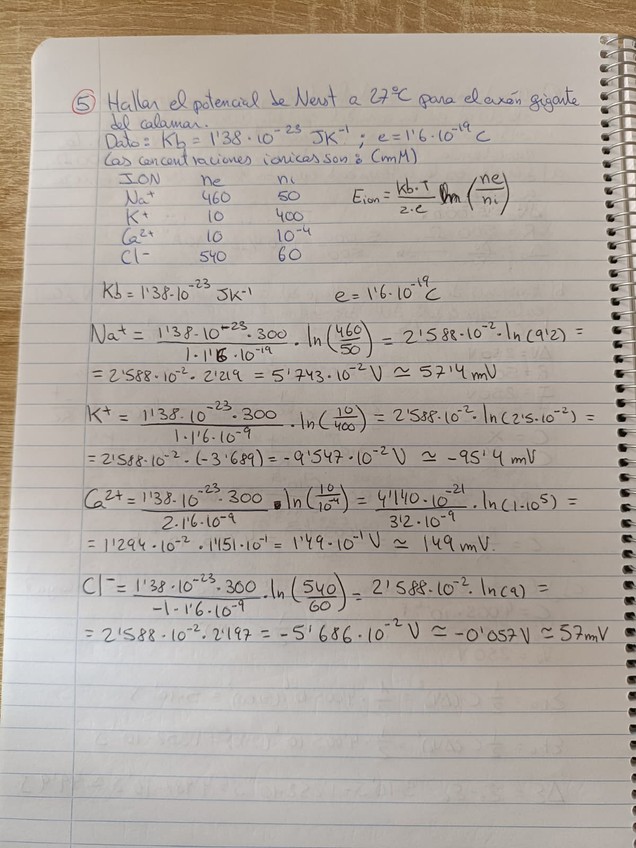 5 Hallar el potencial de Nerst a 27°C para el axón gigante
del calamar.
Dato: Kb = 1'38·10⁻²³ JK⁻¹ ; e = 1'6·10⁻¹⁹ C
Las concentraciones iónicas son: (mM)
ION ne ni
Na⁺ 460 50 Eion = Kb·T/z·e ln (ne/ni)
K⁺ 10 400
Ca²⁺ 10 10⁻⁴
Cl⁻ 540 60
Kb = 1'38·10⁻²³ JK⁻¹ e = 1'6·10⁻¹⁹ C
Na⁺ = 1'38·10⁻²³·300/1·1'6·10⁻¹⁹ · ln(460/50) = 2'588·10⁻²·ln(9'2) =
= 2'588·10⁻²·2'219 = 5'743·10⁻² V ≃ 57'4 mV
K⁺ = 1'38·10⁻²³·300/1·1'6·10⁻⁹ · ln(10/400) = 2'588·10⁻²·ln(2'5·10⁻²) =
= 2'588·10⁻²·(-3'689) = -9'547·10⁻² V ≃ -95'4 mV
Ca²⁺ = 1'38·10⁻²³·300/2·1'6·10⁻⁹ · ln(10/10⁻⁴) = 4'140·10⁻²¹/3'2·10⁻⁹ · ln(1·10⁵) =
= 1'294·10⁻² · 1'151·10⁻¹ = 1'49·10⁻¹ V ≃ 149 mV.
Cl⁻ = 1'38·10⁻²³·300/-1·1'6·10⁻⁹ · ln(540/60) = 2'588·10⁻²·ln(9) =
= 2'588·10⁻²·2'197 = -5'686·10⁻² V ≃ -0'057 V ≃ 57 mV